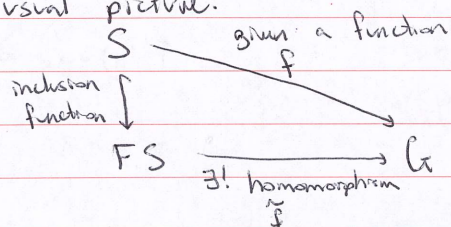 usual picture.
S
given a function
f
inclusion
function
FS
G
∃! homomorphism
f̃